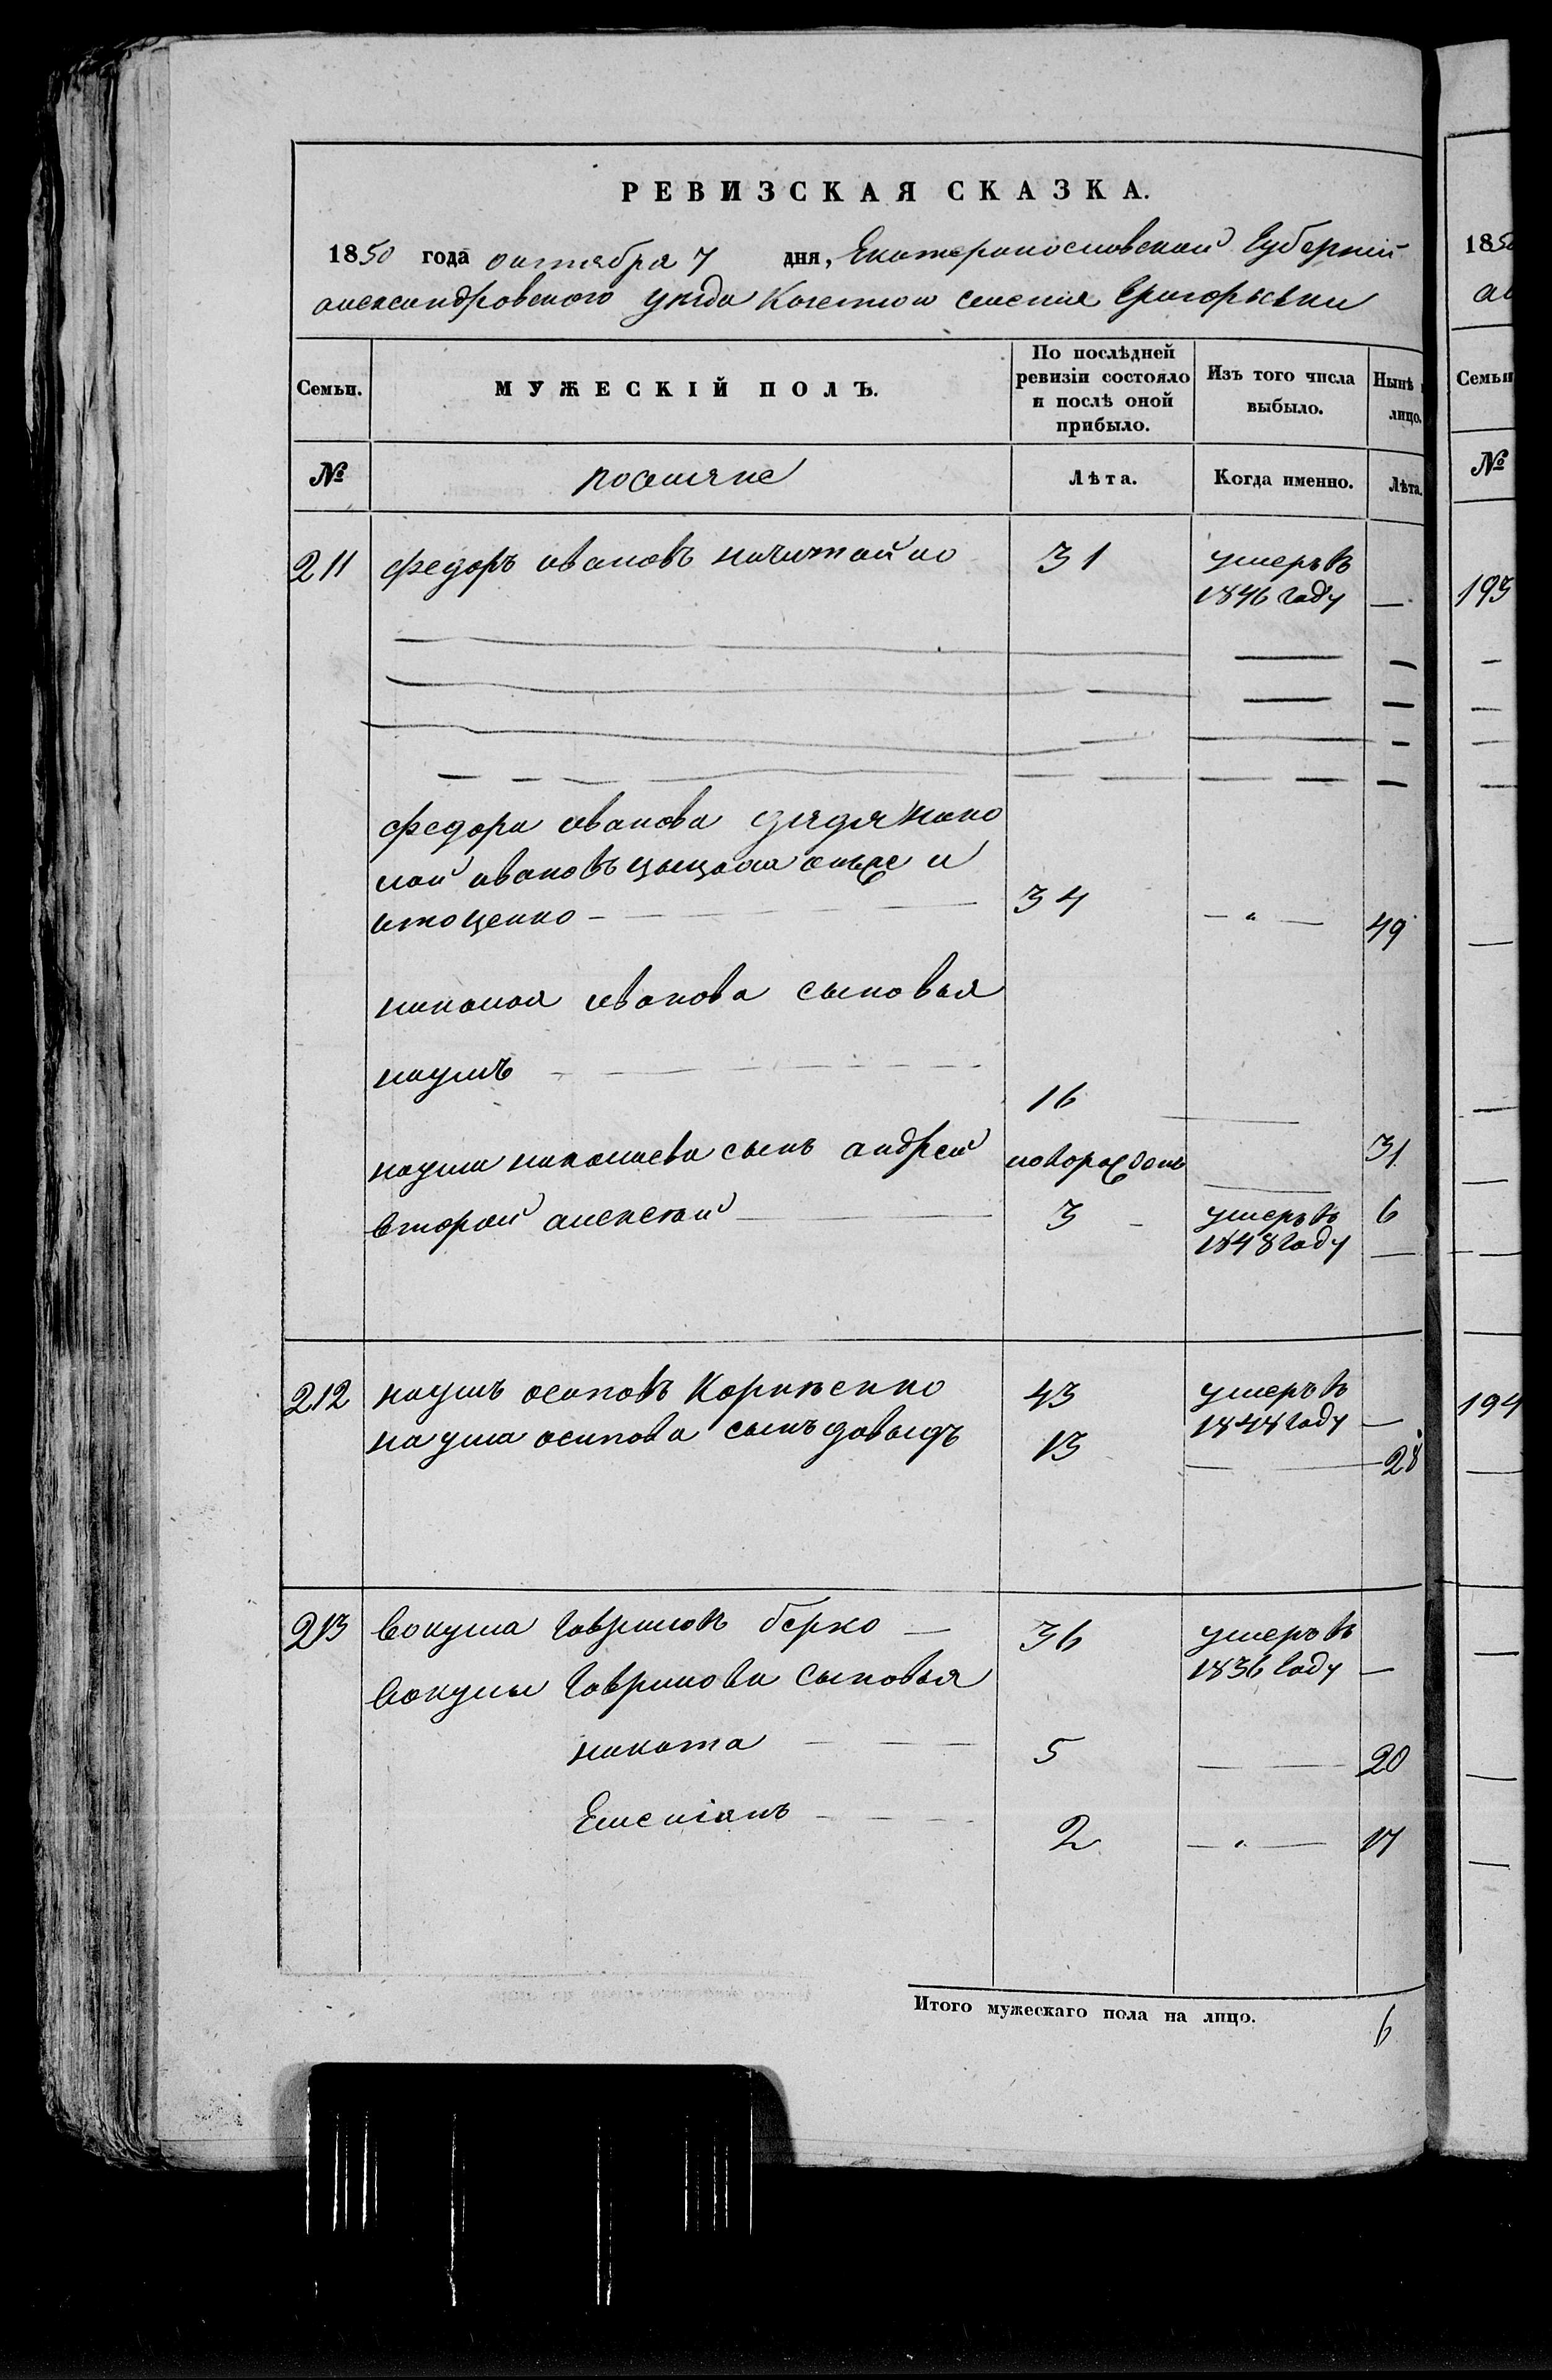 РЕВИЗСКАЯ СКАЗКА.
1850 года октября 7 дня, Екатеринославской Губернии
александровского уезда Казенного селения Григорьевки
Семьи. МУЖЕСКІЙ ПОЛЪ. По послѣдней ревизіи состояло и послѣ оной прибыло. Изъ того числа выбыло. Нынѣ лицо.
№ поселяне Лѣта. Когда именно. Лѣта.
211 федоръ ивановъ 31 умеръ въ
1846 году —
федора иванова дядя нико
лай ивановъ онъ же и
34 — " — 49
николая иванова сыновья
наумъ
16
31
наума николаева сынъ андрей новорожденъ
6
второй алексей 3 умеръ въ
1848 году —
212 наумъ осиповъ Корниенко 43 умеръ въ
1848 году —
наума осипова сынъ давыдъ 13 28
213 вакула гавриловъ берко — 36 умеръ въ
1836 году —
вакулы гаврилова сыновья
никита 5 20
Емеліанъ 2 — " — 17
Итого мужескаго пола на лицо. 6
1850
Семьи
№
193
194